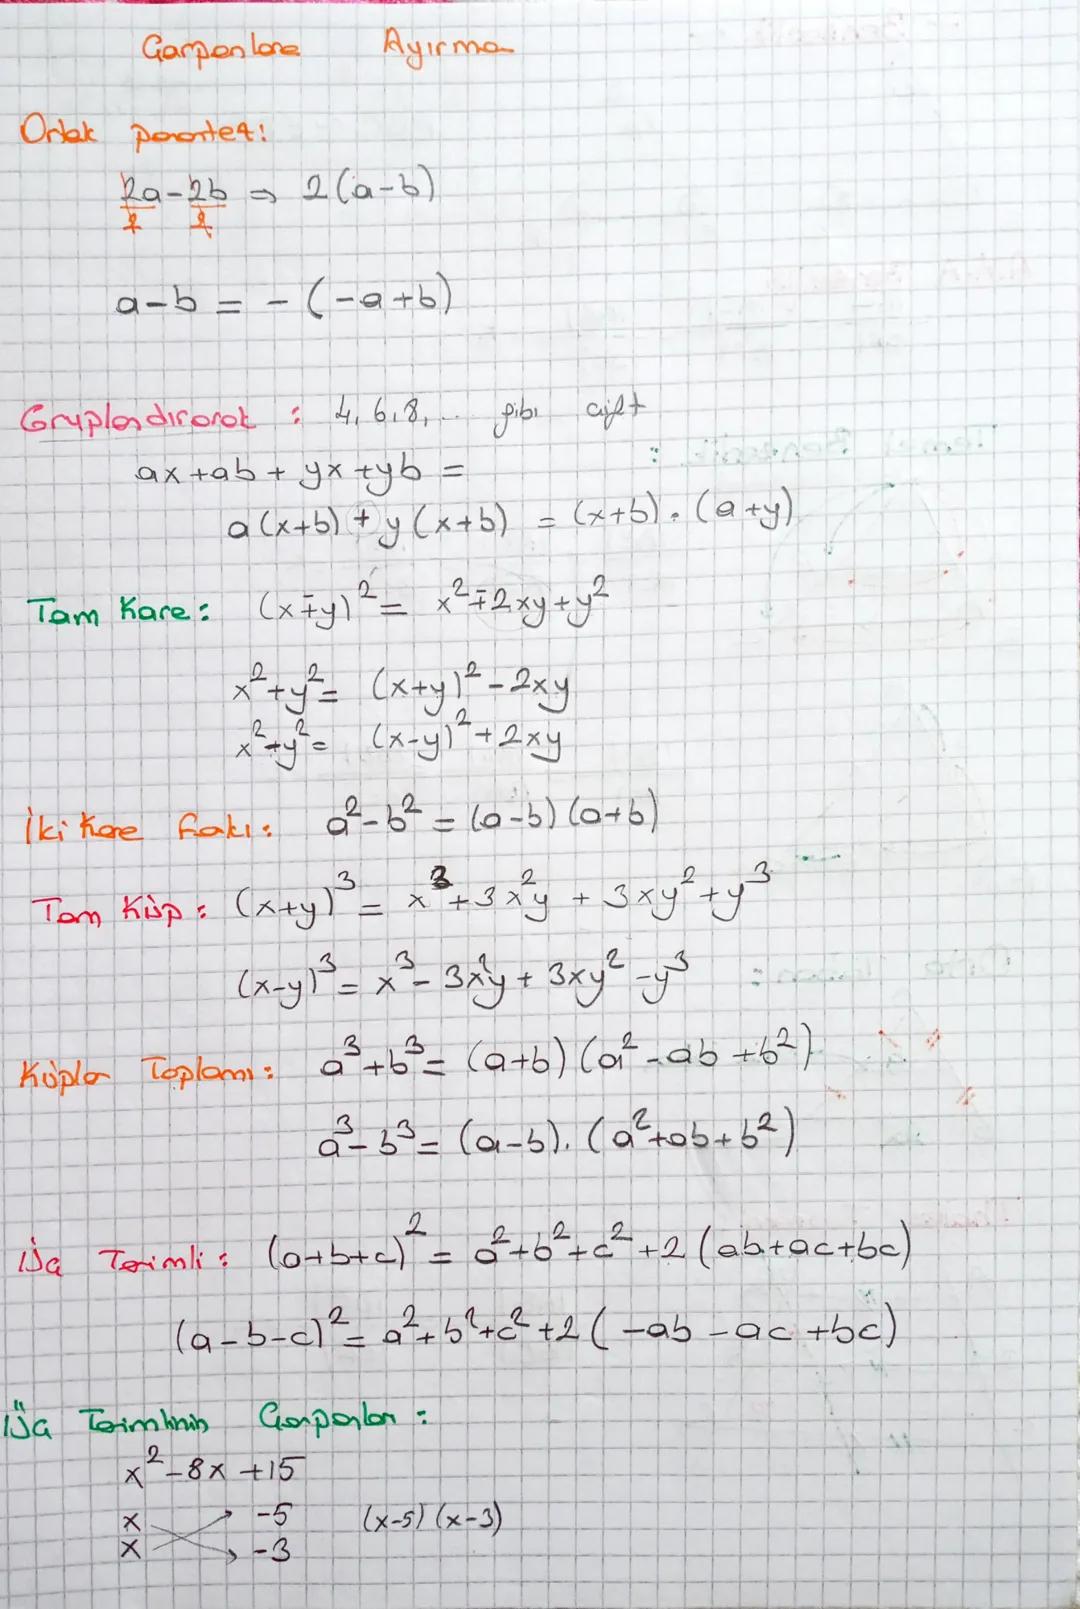 Çarpanlara Ayırma
Ortak parantez:
2a-2b ⇒ 2(a-b)
2 2
a-b = -(-a+b)
Gruplandırarak : 4,6,8,... gibi çift
ax+ab+yx+yb =
a(x+b)+y(x+b) = (x+b).(a+y)
Tam Kare: (x∓y)²= x²∓2xy+y²
x²+y²= (x+y)²-2xy
x²+y²= (x-y)²+2xy
İki Kare Farkı: a²-b² = (a-b)(a+b)
Tam Küp: (x+y)³= x³+3x²y + 3xy²+y³
(x-y)³= x³-3x²y+3xy²-y³
Küpler Toplamı: a³+b³= (a+b)(a²-ab+b²)
a³-b³= (a-b).(a²+ab+b²)
Üç Terimli: (a+b+c)² = a²+b²+c²+2(ab+ac+bc)
(a-b-c)²= a²+b²+c²+2(-ab-ac+bc)
Üç Terimlinin Çarpanları :
x²-8x+15
x -5 (x-5)(x-3)
x -3